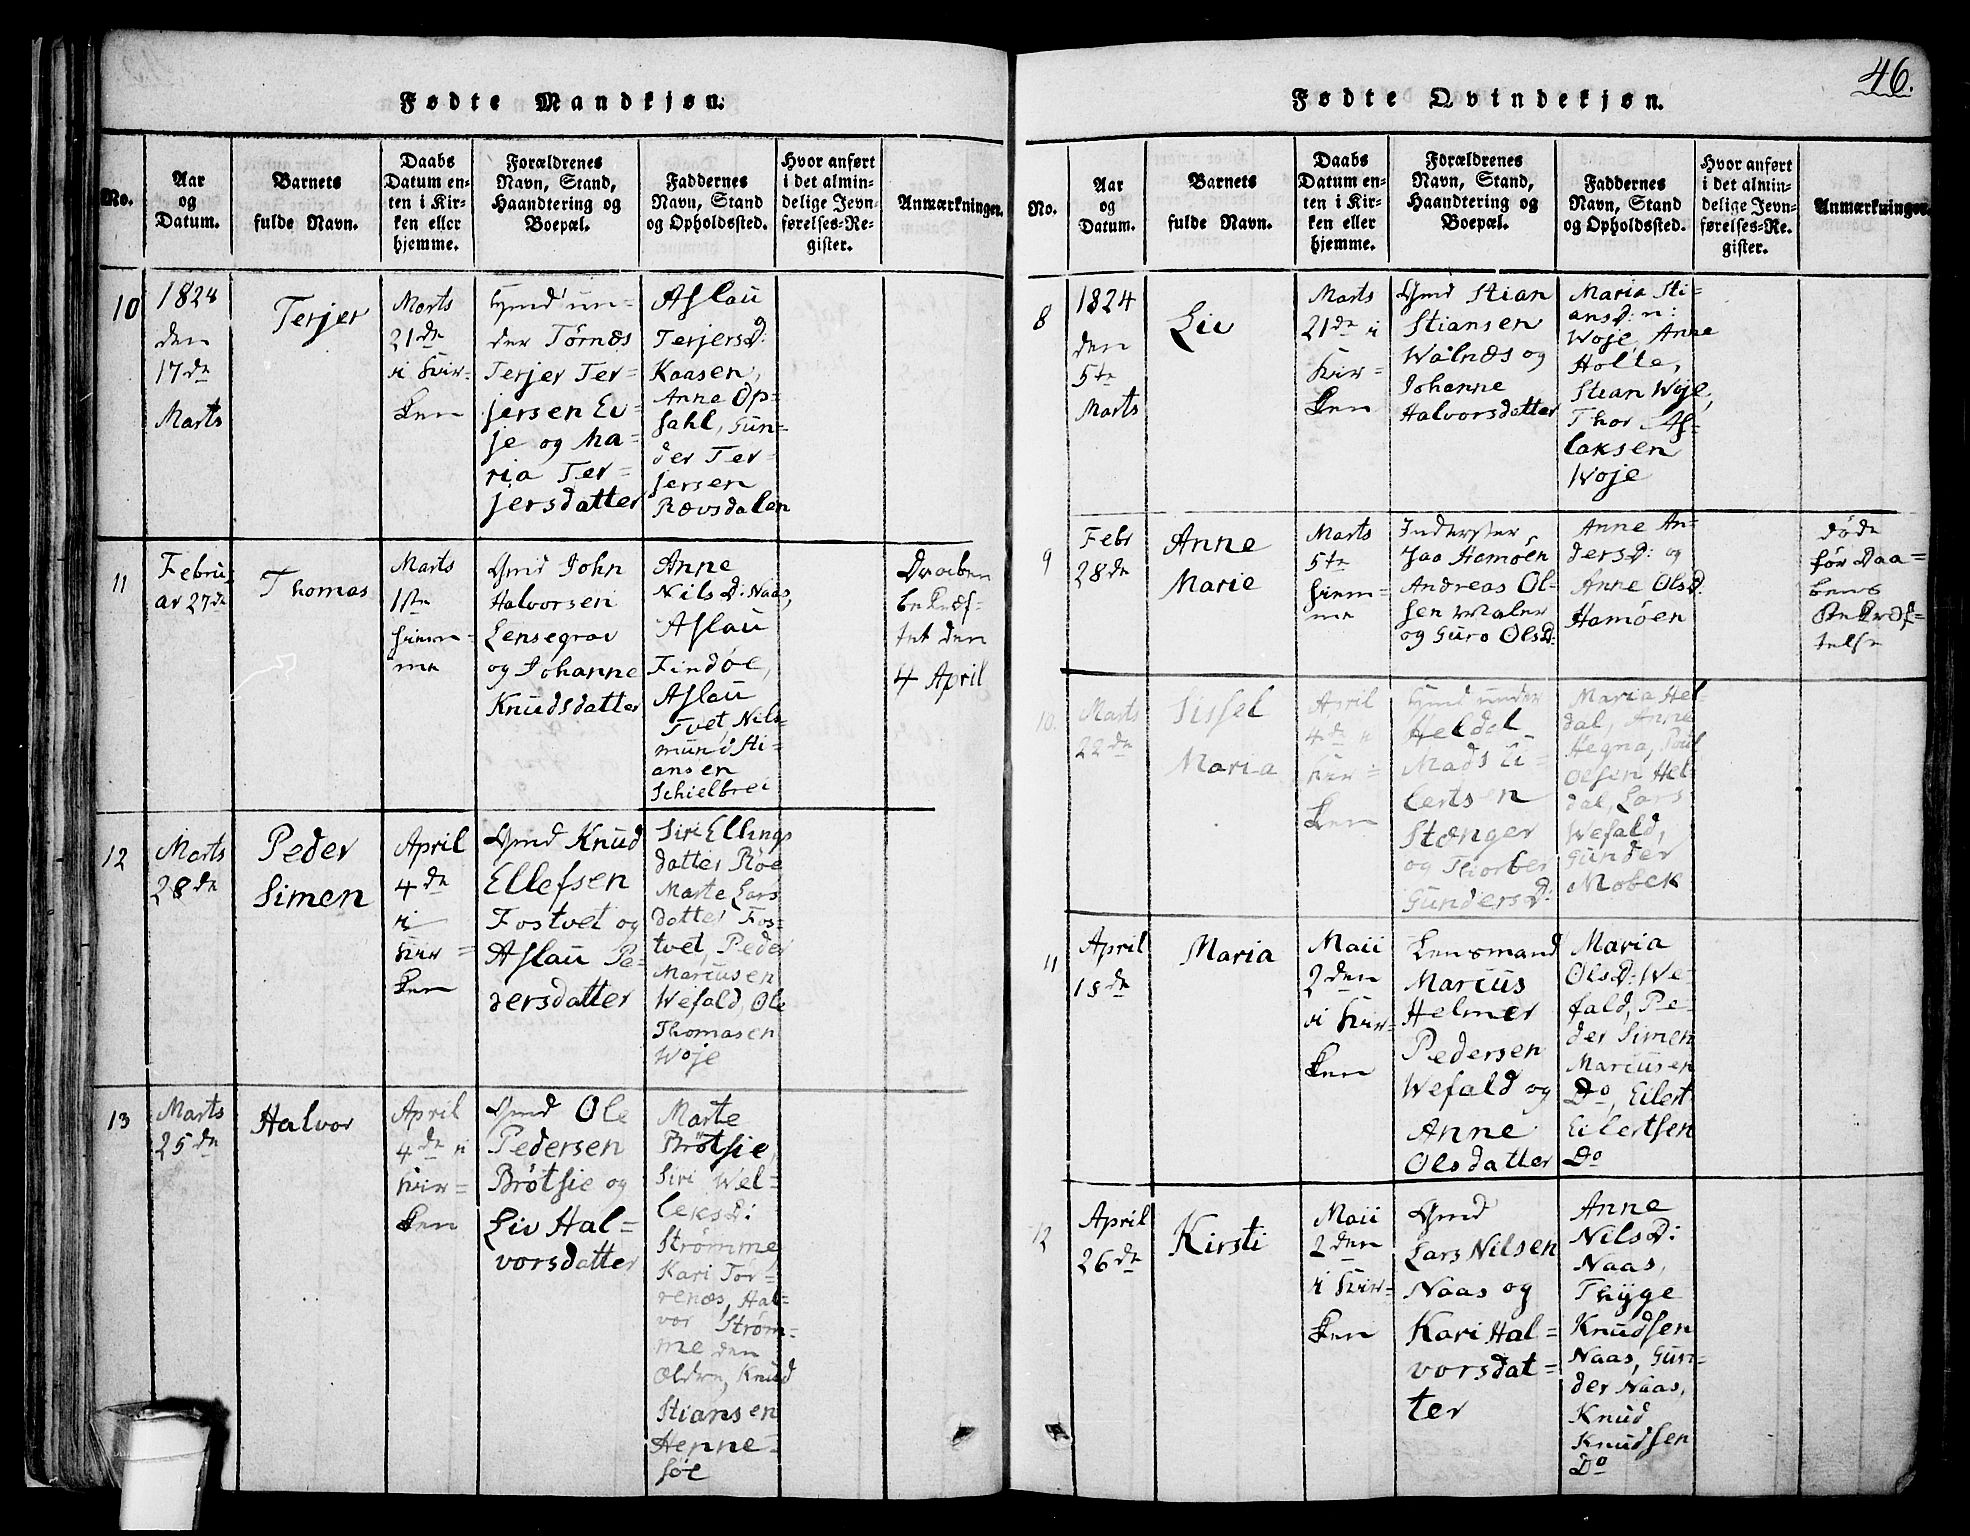 46.
Fødte Mandkjøn.
No.
Aar
og
Datum.
Barnets
fulde Navn.
Daabs
Datum en-
ten i Kir-
ken eller
hjemme.
Forældrenes
Navn, Stand,
Haandtering og
Boepæl.
Faddernes
Navn, Stand
og Opholdssted.
Hvor anført
i det almin-
delige Jevn-
førelses-Re-
gister.
Anmærkninger.
10
1824
den
17de
Marts
Terjer
Marts
21de
i Kir-
ken
Gmd un-
der Tørnes
Terjer Ter-
jersen Ei-
je og Ma-
ria Ter-
jersdatter
Aslau
TerjersD:
Kaasen,
Anne Op-
sahl, Gun-
der Ter-
jersen
Rævsdalen
11
Febru-
ar 27de
Thomas
Marts
1ste
hjem-
me
Gmd John
Halvorsen
Lensegrav
og Johanne
Knudsdatter
Anne
NilsD: Naas,
Aslau
Findøe,
Aslau
Tvet, Nils-
mund Sti-
ansen
Schielbrei
Daaben
bekræf-
tet den
4 April
12
Marts
28de
Peder
Simen
April
4de
i
Kir-
ken
Gmd Knud
Ellefsen
Fostvet og
Aslau Pe-
dersdatter
Siri Ellings
datter Røe
Marte Lars
datter Fos-
tvet, Peder
Marcusen
Wefald, Ole
Thomasen
Woje
13
Marts
25de
Halvor
April
4de i
Kir-
ken
Gmd Ole
Pedersen
Brøtsie og
Liv Hal-
vorsdatter
Marte
Brøtsie,
Siri Wel-
leksD:
Strømme,
Kari Tor-
renæs, Hal-
vor Strøm-
me den
Ældre, Knud
Stiansen
Henne-
søe
Fødte Qvindekjøn.
No.
Aar
og
Datum.
Barnets
fulde Navn.
Daabs
Datum en-
ten i Kir-
ken eller
hjemme.
Forældrenes
Navn, Stand,
Haandtering og
Boepæl.
Faddernes
Navn, Stand
og Opholdssted.
Hvor anført
i det almin-
delige Jevn-
førelses-Re-
gister.
Anmærkninger.
8
1824
den
5te
Marts
Liv
Marts
21de i
Kir-
ken
Gmd Stian
Stiansen
Walnæs og
Johanne
Halvorsdatter
Maria Sti-
ansD:
Woje, Anne
Holte,
Stian Woje,
Thor As-
laksen
Woje
9
Febr
28de
Anne
Marie
Marts
5te
hjem-
me
Inderster
paa Hamøen
Andreas Ol-
sen Maler
og Guro OlsD:
Anne An-
dersD: og
Anne OlsD:
Hamøen
døde
før Daa-
bens
Bekræf-
telse
10.
Marts
22de
Sissel
Maria
April
4de i
Kir-
ken
Gmd under
Heldal
Mads Ei-
lertsen
Stænger
og Thorber
GundersD:
Maria Hel
dal, Anne
Hegna, Poul
Olsen Hel-
dal, Lars
Wefald,
Gunder
Mobek
11
April
18de
Maria
Maii
2den
i Kir-
ken
Lensmand
Marcus
Helmer
Pedersen
Wefald og
Anne
Olsdatter
Maria
OlsD: We-
fald, Pe-
der Simen
Marcusen
Do, Eilert
Eilertsen
Do
12
April
26de
Kirsti
Maii
2den
i Kir-
ken
Gmd
Lars Nilsen
Naas og
Kari Hal-
vorsdat-
ter
Anne
NilsD:
Naas,
Thyge
Knudsen
Naas, Gun-
der Naas,
Knud
Knudsen
Do